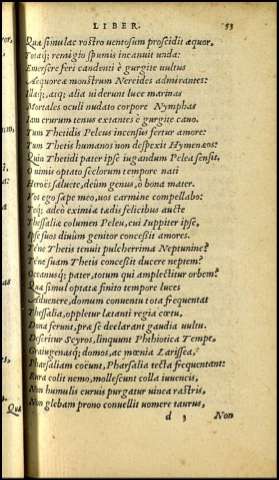 LIBER. 53
Quæ simulac rostro uentosum proscidit æquor,
Totaq; remigio spumis incanuit unda:
Emersere feri candenti è gurgite uultus
Aequoreæ monstrum Nereides admirantes:
Illaq;, atq; alia uiderunt luce marinas
Mortales oculi nudato corpore Nymphas
Iam crurum tenus extantes è gurgite cauo.
Tum Thetidis Peleus incensus fertur amore:
Tum Thetis humanos non despexit Hymenæos:
Quin Thetidi pater ipse iugandum Pelea sensit,
O nimis optato seclorum tempore nati
Heroës saluete, deûm genus, ô bona mater.
Vos ego sæpe meo, uos carmine compellabo:
Teq; adeo eximiæ tædis felicibus aucte
Thessaliæ columen Peleu, cui Iuppiter ipse,
Ipse suos diuûm genitor concessit amores.
Téne Thetis tenuit pulcherrima Neptunine?
Téne suam Thetis concessit ducere neptem?
Oceanusq; pater, totum qui amplectitur orbem?
Qua simul optatæ finito tempore luces
Aduenere, domum conuentu tota frequentat
Thessalia, oppletur lætanti regia cœtu,
Dona ferunt, præ se declarant gaudia uultu.
Deseritur Scyros, linquunt Phthiotica Tempe,
Graiugenasq; domos, ac mœnia Larissea,
Pharsaliam coëunt, Pharsalia tecta frequentant:
Rura colit nemo, mollescunt colla iuuencis,
Non humilis curuis purgatur uinea rastris,
Non glebam prono conuellit uomere taurus,
d 3 Non
Quæ